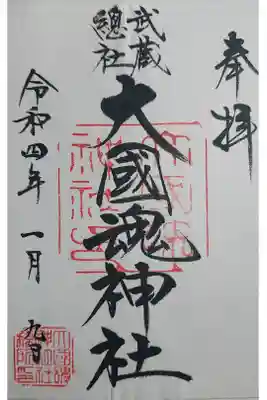 奉拝
武蔵
總社
大國魂神社
令和四年一月九日